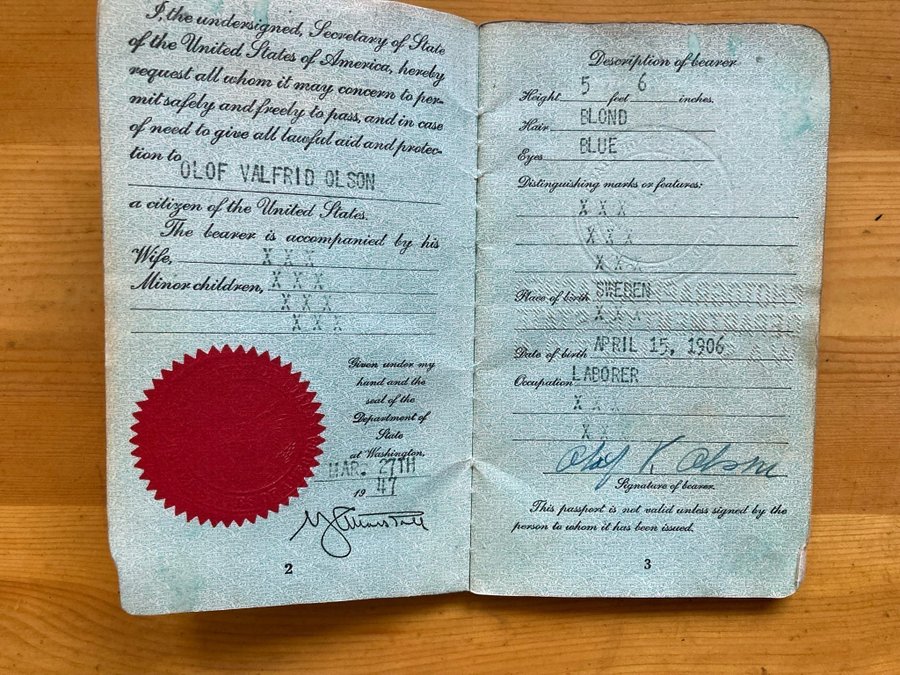 I, the undersigned, Secretary of State
of the United States of America, hereby
request all whom it may concern to per-
mit safely and freely to pass, and in case
of need to give all lawful aid and protec-
tion to
OLOF VALFRID OLSON
a citizen of the United States.
The bearer is accompanied by his
Wife, X X X
Minor children, X X X
X X X
X X X
Given under my
hand and the
seal of the
Department of
State
at Washington,
MAR. 27TH
19 47
2
Description of bearer
Height 5 feet 6 inches.
Hair BLOND
Eyes BLUE
Distinguishing marks or features:
X X X
X X X
X X X
Place of birth SWEDEN
X X X
Date of birth APRIL 15, 1906
Occupation LABORER
X X X
X X
Olof V. Olson
Signature of bearer.
This passport is not valid unless signed by the
person to whom it has been issued.
3